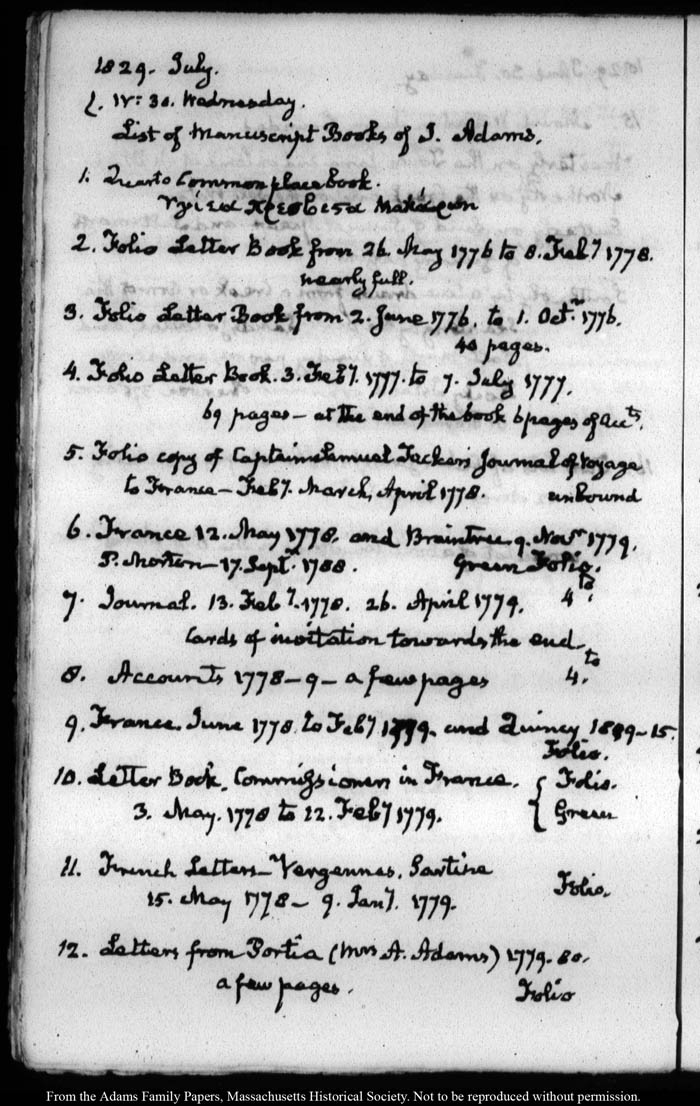 1829. July.
IV: 30. Wednesday.
List of Manuscript Books of J. Adams.
1. Quarto Common place book.
2. Folio Letter Book from 26. May 1776 to 8. Feby 1778.
nearly full.
3. Folio Letter Book from 2. June 1776. to 1. Octr 1776.
40 pages.
4. Folio Letter Book. 3. Feby. 1777. to 7. July 1777.
69 pages — at the end of the book 6 pages of Accts.
5. Folio copy of Captain Samuel Tucker's Journal of Voyage
to France — Feby. March, April 1778. unbound
6. France 12. May 1778. and Braintree 9. Novr 1779.
P. Morton — 17. Septr. 1788. Green Folio.
7. Journal. 13. Feby. 1778. 26. April 1779. 4to.
Cards of invitation towards the end
8. Accounts 1778–9 — a few pages 4.to
9. France. June 1778. to Feby 1779. and Quincy 1809–15.
Folio.
10. Letter Book. Commissioners in France. { Folio.
3. May. 1778 to 12. Feby 1779. { Green
11. French Letters — Vergennes. Sartine
15. May 1778 — 9. Jany. 1779. Folio.
12. Letters from Portia (Mrs A. Adams) 1779. 80.
a few pages. Folio
From the Adams Family Papers, Massachusetts Historical Society. Not to be reproduced without permission.